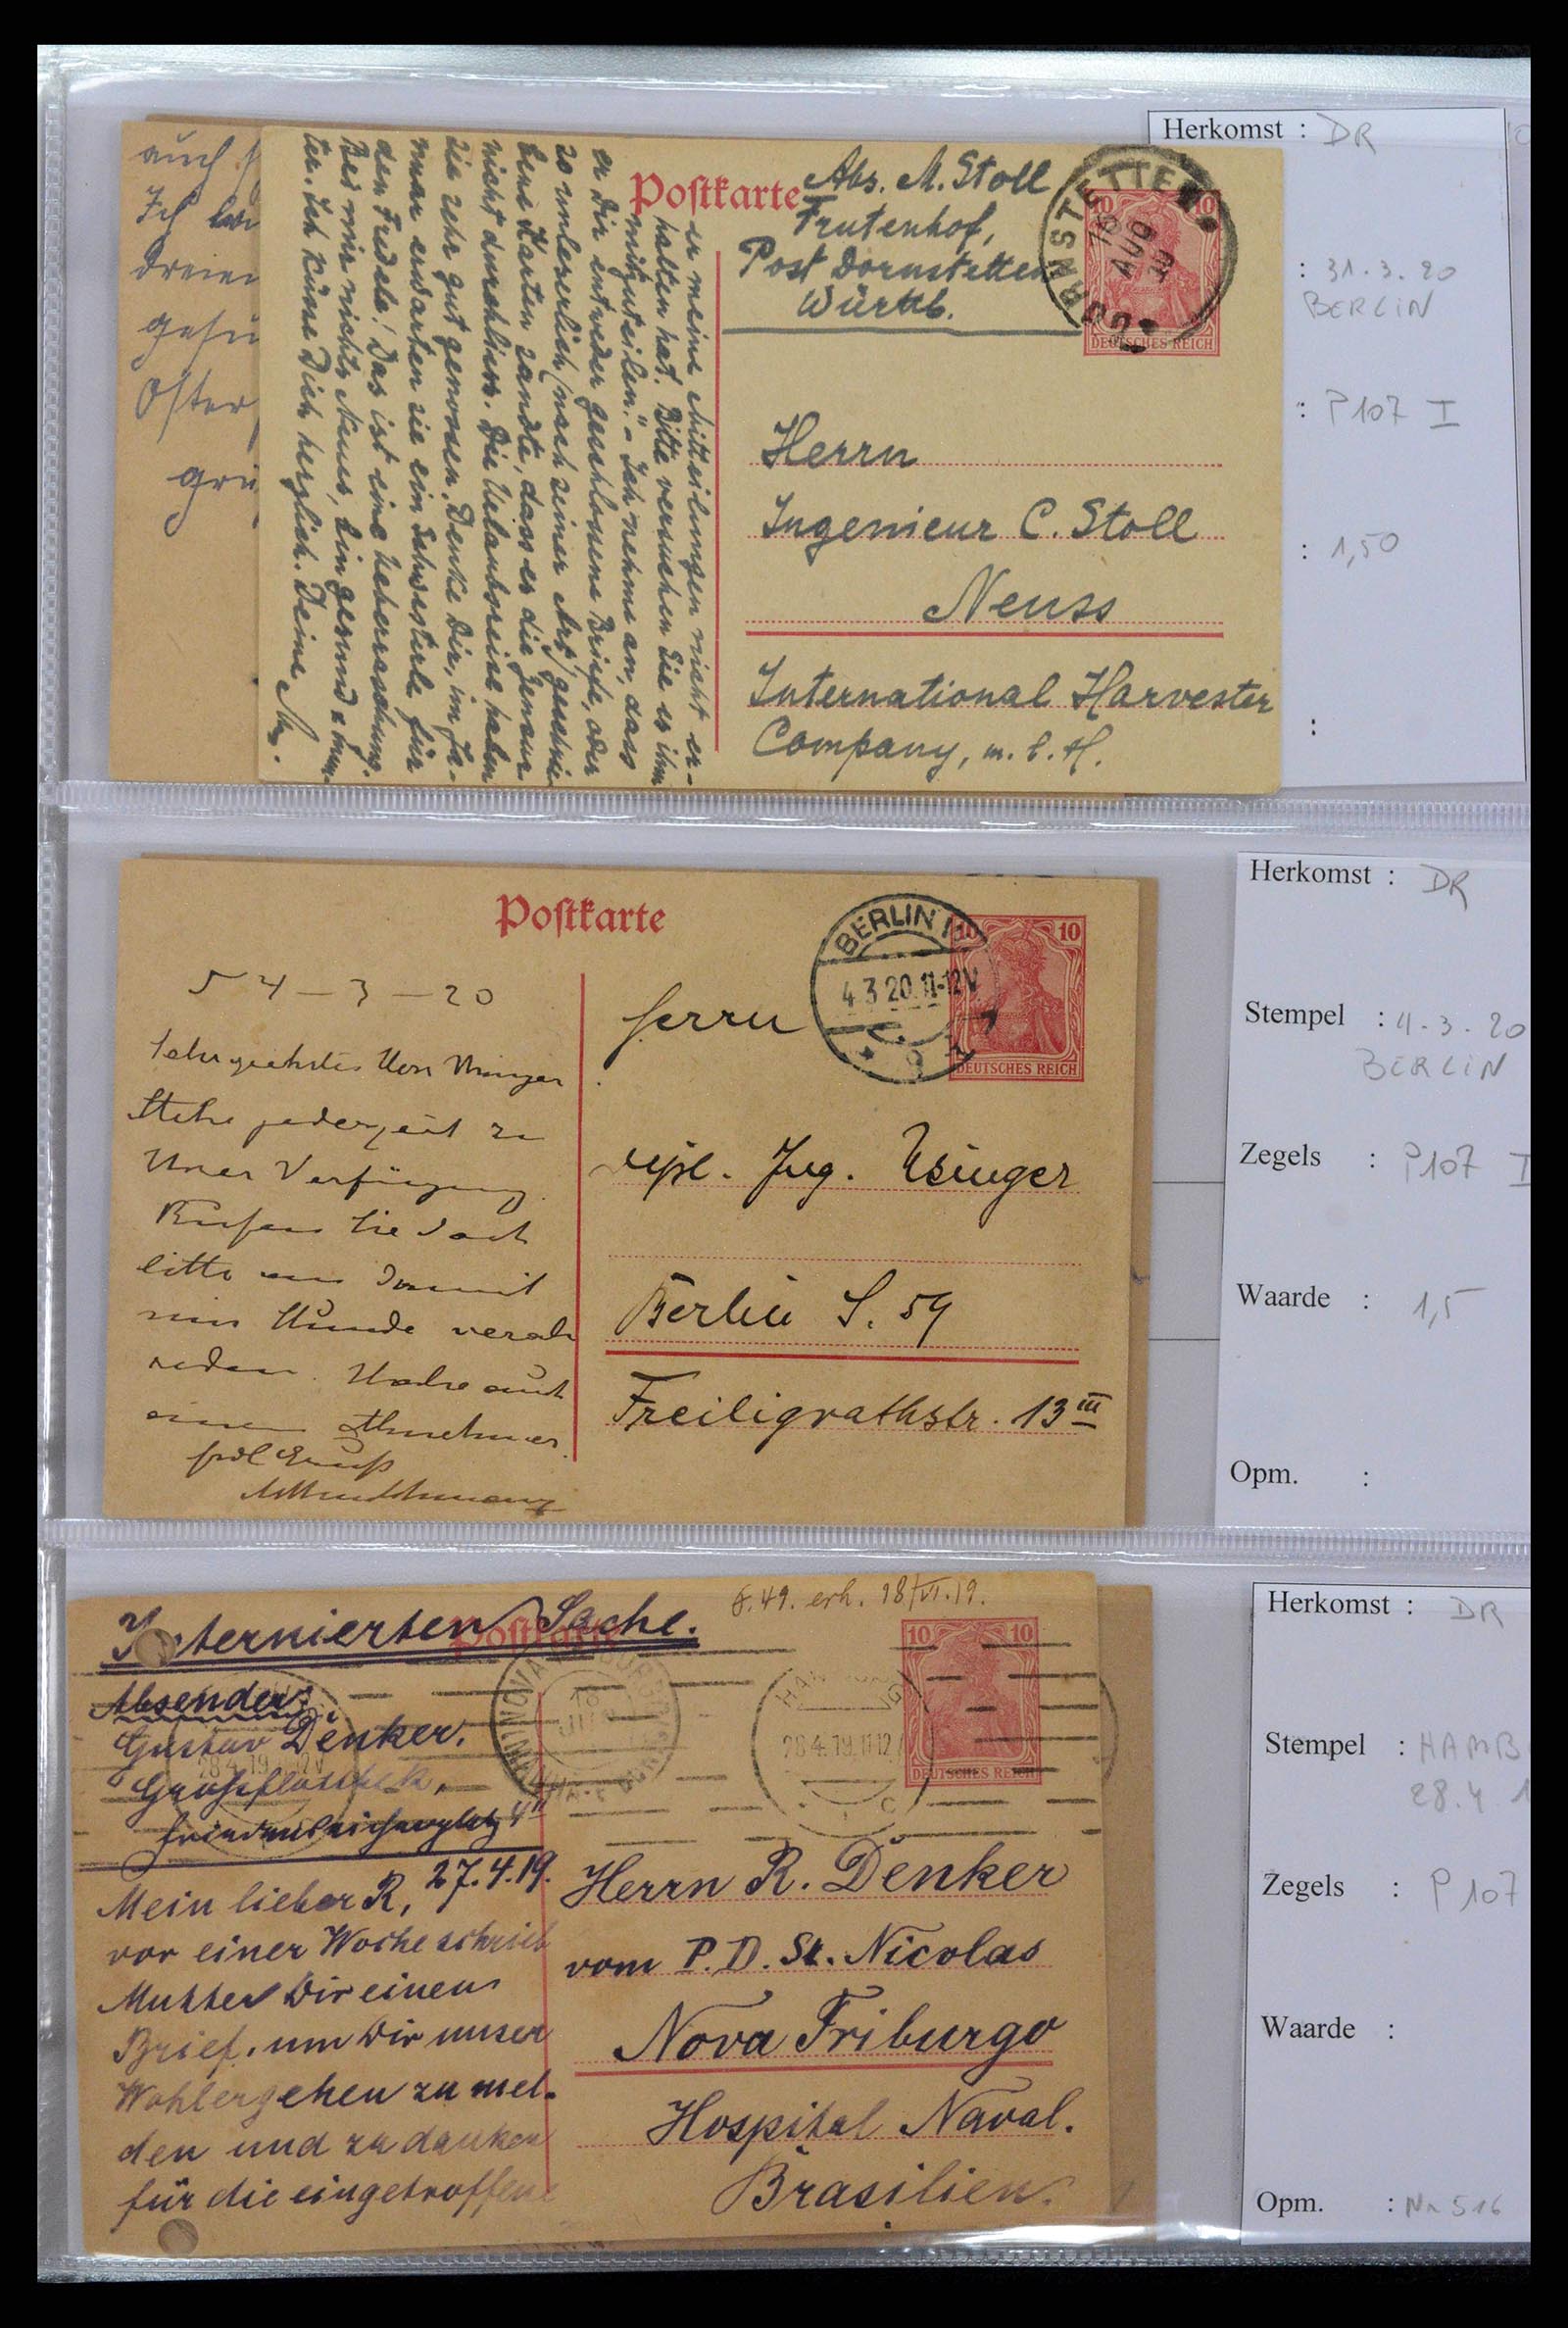 Herkomst : DR
: 31.3.20
BERLIN
: P107 I
: 1,50
:
auch
Ich
dreien
Oster
Postkarte
Abs. M. Stoll
Frutenhof,
Post Dornstetten
Württb.
DORNSTETTEN
AUG
10 10
DEUTSCHES REICH
Herrn
Ingenieur C. Stoll
Neuss
International Harvester
Company, m. b. H.
er meine Mitteilungen nicht er-
halten hat. Bitte versuchen Sie es ihm
mitzuteilen." - Ich nehme an, dass
er Dir entweder geschlossene Briefe, oder
so unleserlich (nach seiner Art) geschrie-
bene Karten sandte, dass es die Zensur
nicht durchliess. Die Urlaubsreise haben
Sie sehr gut genossen. Denke Dir, im Ja-
nuar erwarten sie ein Schwesterle für
den Friedele! Das ist eine Ueberraschung.
Bei mir nichts Neues, bin gesund & mun-
ter. Ich küsse Dich herzlich. Deine M.
Herkomst : DR
Stempel : 4.3.20
BERLIN
Zegels : P107 I
Waarde : 1,5
Opm. :
Postkarte
BERLIN
4.3.20.11-12V
10 10
DEUTSCHES REICH
4-3-20
Sehr geehrter Herr
Stehe jederzeit zu
Ihrer Verfügung
Rufen Sie doch
bitte an damit
wir Stunde verab
reden. Habe auch
einen Abnehmer.
Gruß
Herrn
Dipl. Ing. Usinger
Berlin S. 59
Freiligrathstr. 13 III
Herkomst : DR
Stempel : HAMB
28.4 1
Zegels : P107
Waarde :
Opm. : Nr 516
49. erh. 18/VI.19.
Internierten Sache.
Postkarte
Absender:
Gustav Denker.
Großflottbek,
4 II
28.4.19.11-12V
10 10
DEUTSCHES REICH
27.4.19.
Mein lieber R,
vor einer Woche schrieb
Mutter Dir einen
Brief, um Dir unser
Wohlergehen zu mel-
den und zu danken
für die eingetroffene
Herrn R. Denker
vom P. D. St. Nicolas
Nova Friburgo
Hospital Naval.
Brasilien.